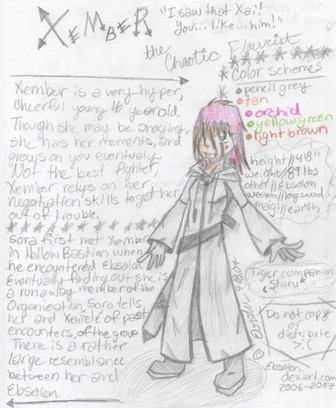 XEMBER
"I saw that Xai!
You... like... him!"
the Chaotic Flourist
Color schemes
pencil grey
tan
orchid
yellowgreen
light brown
Xember is a very hyper,
cheerful young 16 year old.
Though she may be annoying,
she has her moments, and
grows on you eventually.
Not the best fighter,
Xember relies on her
negotiation skills to get her
out of trouble.
height//4'8"
weight//89 lbs
other//Ebsolon
weapon//longsword
magi//earth
Sora first met Xember
in Hollow Bastion when
he encountered Ebsolon.
Eventually finding out she is
a runaway member of the
Organization, Sora tells
her and Xairdé of past
encounters of the group.
There is a rather
large resemblance
between her and
Ebsolon.
Tiger companion
"Staru"
Do not copy
or
distribute
>:(
© Ebsolon.
deviart.com
2006-2007